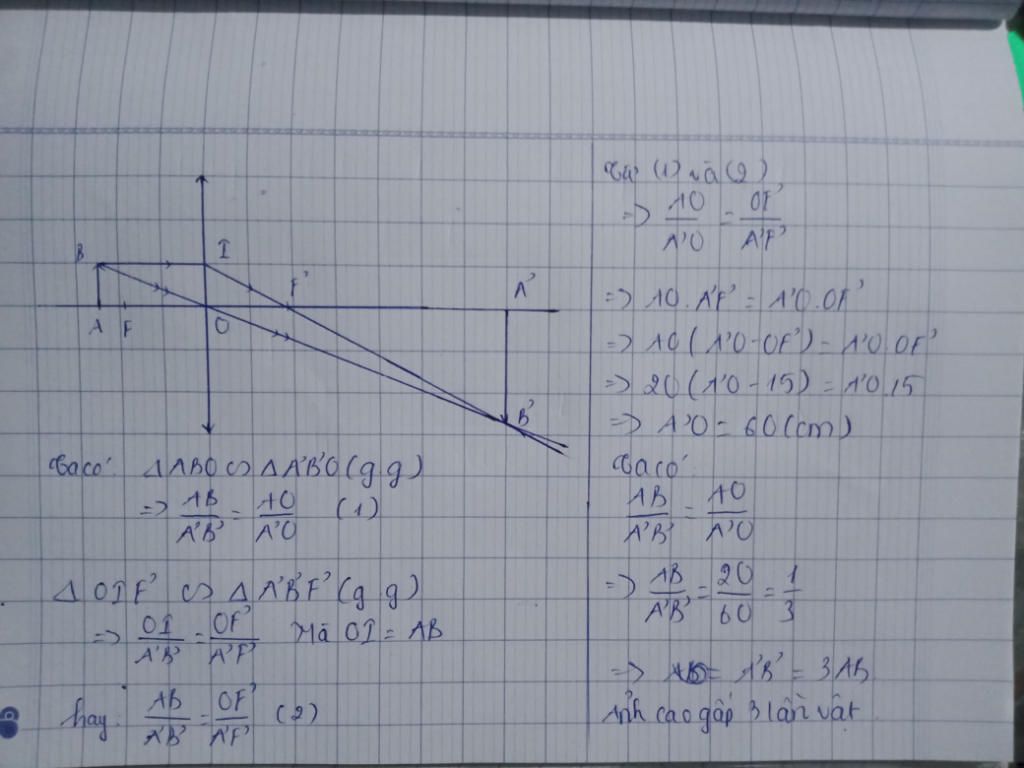 B
I
F'
A'
A
F
O
B'
Ta có: △ABO ∽ △A'B'O (g.g)
=> AB/A'B' = AO/A'O (1)
△OIF' ∽ △A'B'F' (g.g)
=> OI/A'B' = OF'/A'F' Mà OI = AB
hay: AB/A'B' = OF'/A'F' (2)
Từ (1) và (2)
=> AO/A'O = OF'/A'F'
=> AO.A'F' = A'O.OF'
=> AO(A'O-OF') = A'O.OF'
=> 20(A'O-15) = A'O.15
=> A'O = 60(cm)
Ta có:
AB/A'B' = AO/A'O
=> AB/A'B' = 20/60 = 1/3
=> A'B' = 3AB
Ảnh cao gấp 3 lần vật